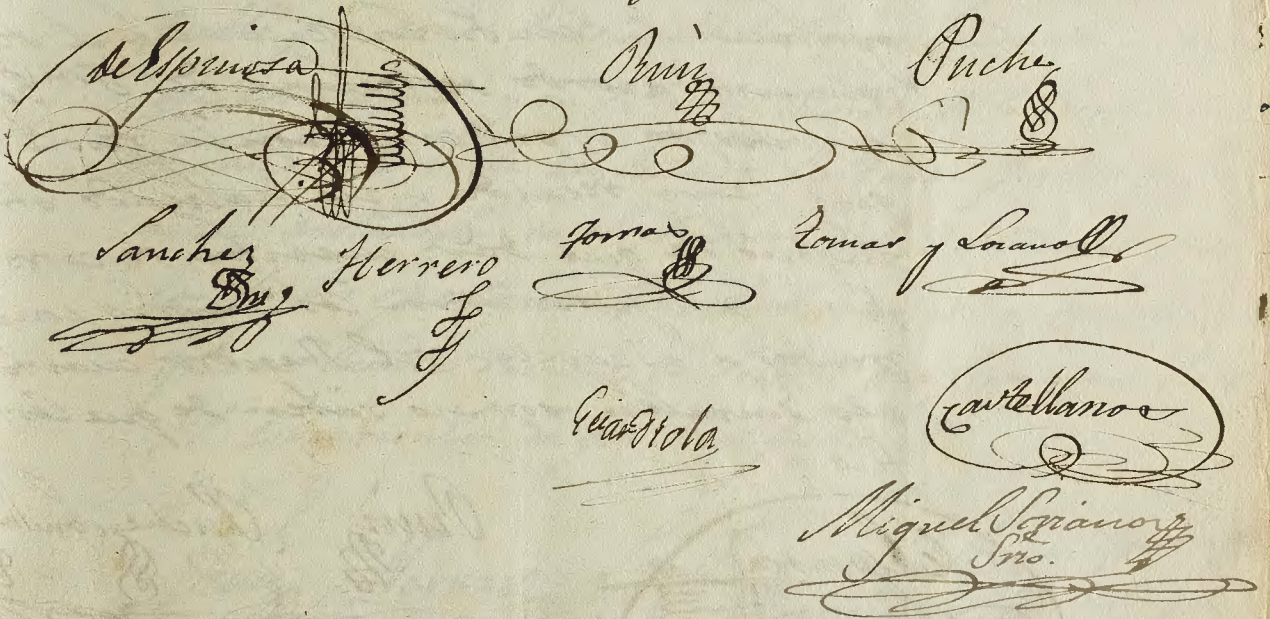 de Espinosa Ruiz Puche
Sanchez Herrero Tomas Tomas y Lozano
Guardiola Castellanos
Miguel Soriano
Srio.